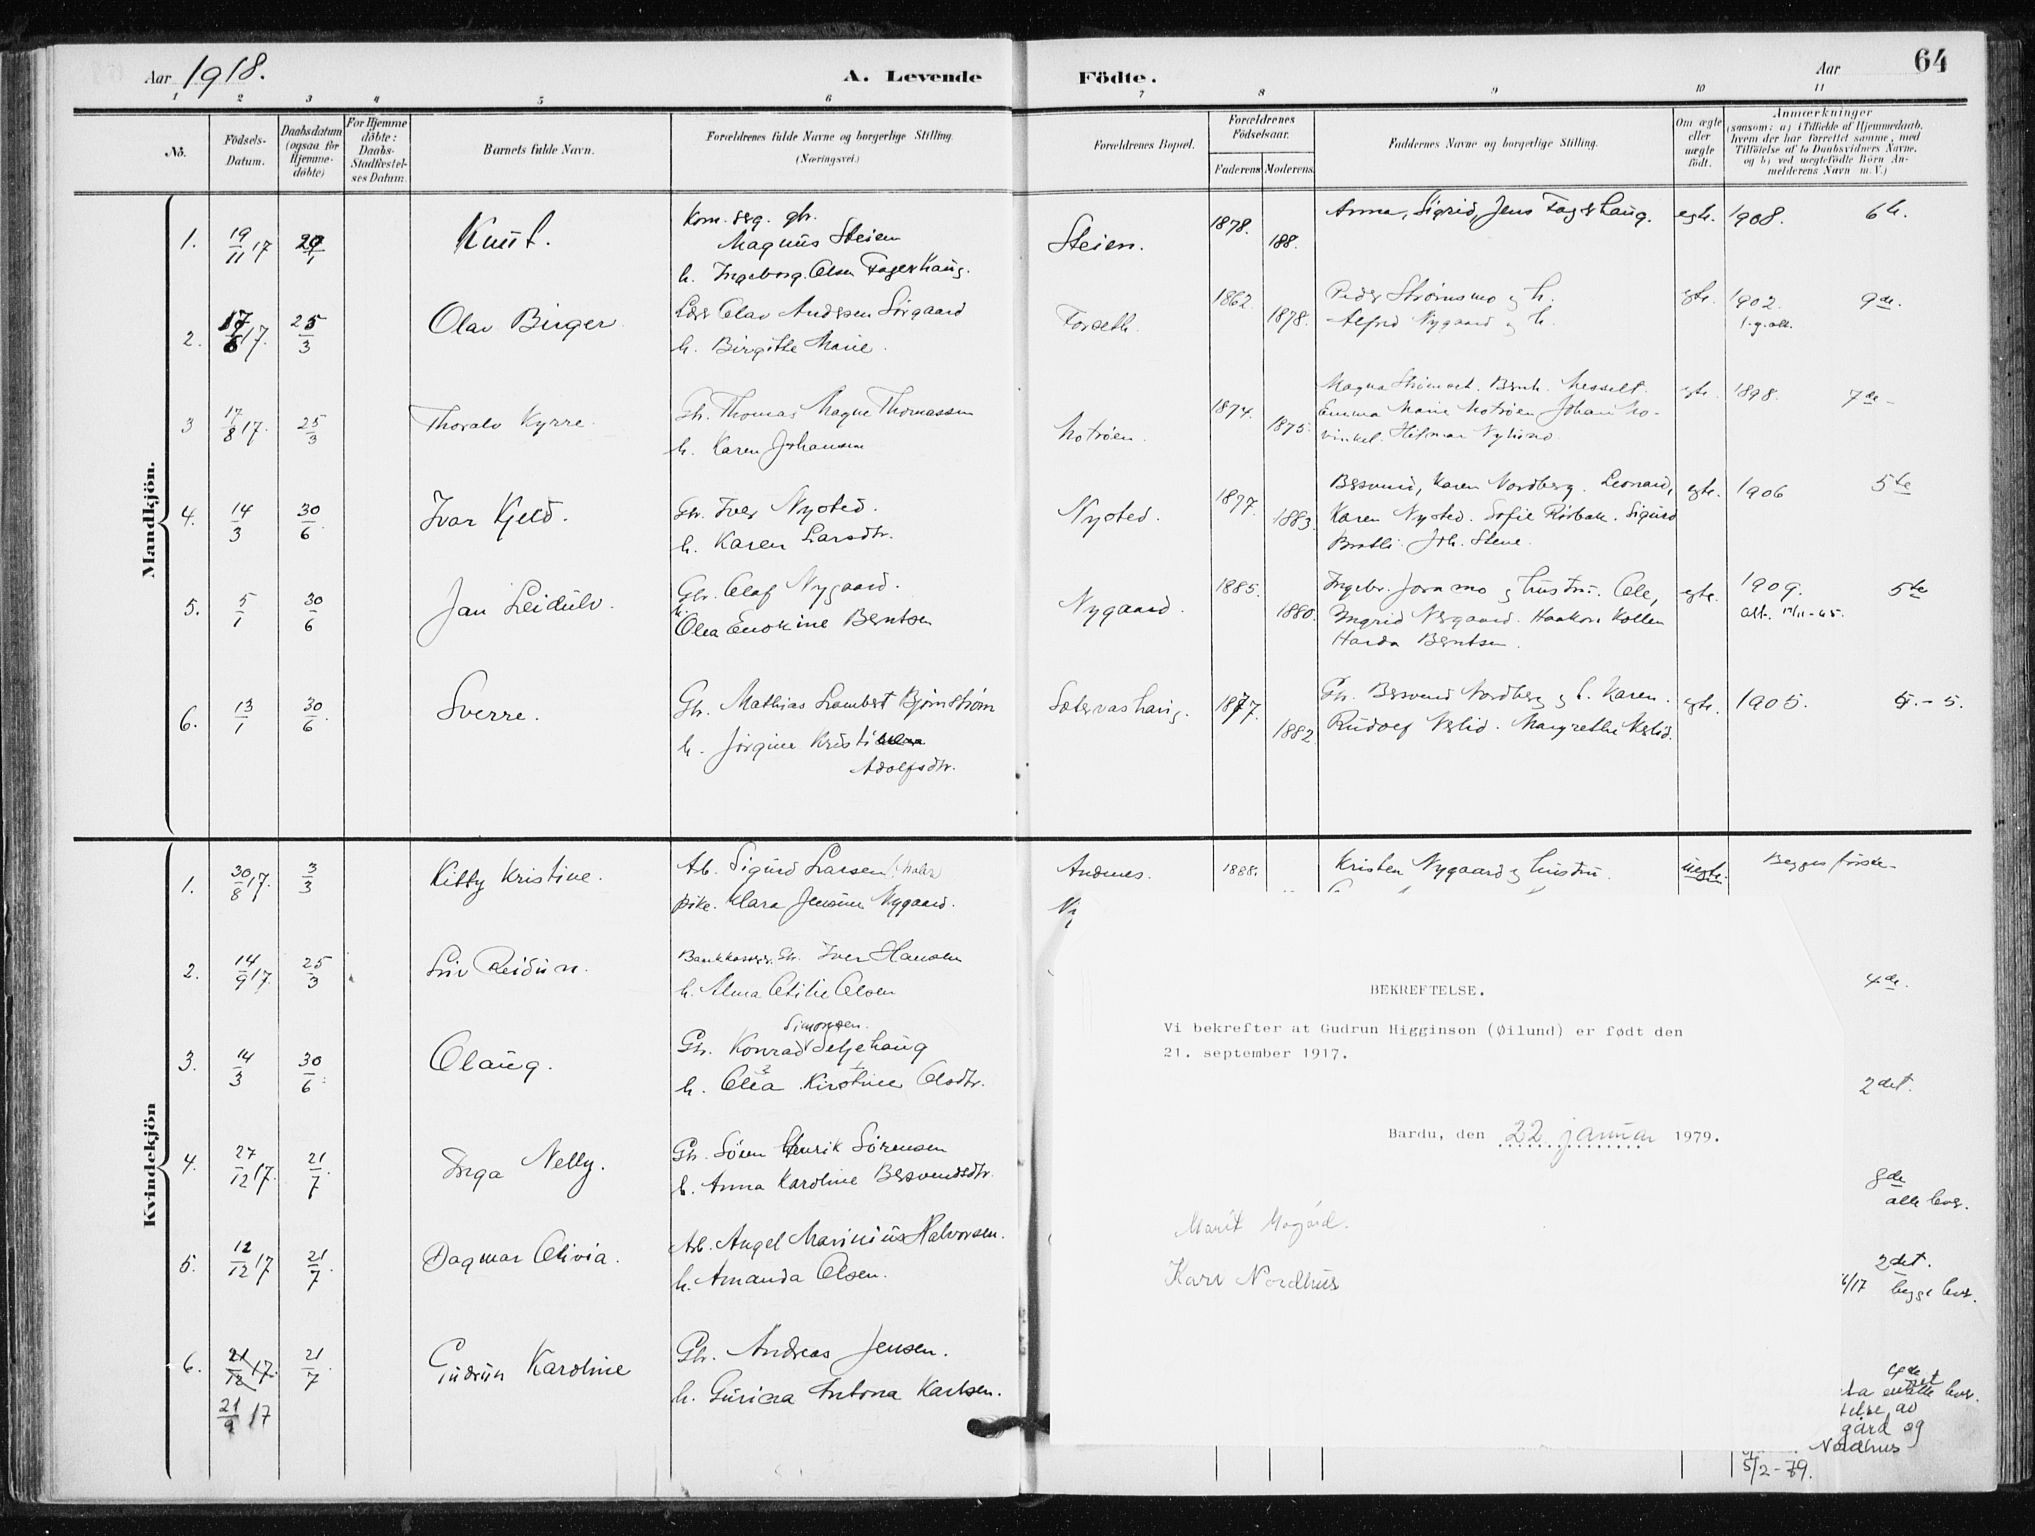 Aar 1918.
A. Levende
Födte.
Aar
64
1 2 3 4 5 6 7 8 9 10 11
No.
Födsels-
Datum.
Daabsdatum
(ogsaa for
Hjemme-
döbte)
For Hjemme
döbte:
Daabs-
Stadfæstel-
ses Datum.
Barnets fulde Navn.
Forældrenes fulde Navne og borgerlige Stilling.
(Næringsvei.)
Forældrenes Bopæl.
Forældrenes
Födselsaar.
Faderens Moderens
Faddernes Navne og borgerlige Stilling.
Om ægte
eller
uægte
födt.
Anmærkninger
(saasom: a) i Tilfælde af Hjemmedaab,
hvem der har forrettet samme, med
Tilföielse af to Daabsvidners Navne,
og b) ved uægtefödte Börn An-
melderens Navn m. V.)
Mandkjön.
1. 19/11 17 Knut.
Magnus Steien
h. Ingeborg Olsen Fagerhaug.
Steien. 1878. 188.
Anna, Sigrid, Jens Fagerhaug. egte. 1908. 6te.
2. 17. 25/3 Olav Birger
Olav Andersen Sörgaard
h. Birgitte Marie.
Forseth 1862. 1878.
Peder Strømsmo og h.
Alfred Nygaard og h. egte. 1902. 9de.
3 17/8 17. 25/3 Thoralv Kyrre.
Gbr. Thomas Magne Thomassen
h. Karen Johansen
Motröen. 1874. 1875.
Emma Marie Motröen
Hilmar Nylund egte. 1898. 7de
4. 14/3 30/6 Ivar Kjeld.
Gbr. Iver Nysted.
h. Karen Larsdtr.
Nysted. 1877. 1883.
Karen Nordberg. Leonard,
Karen Nysted. Sofie Sigurd
Bratli. Joh. Stene. egte. 1906 5te
5. 5/1 30/6 Jan Leidulv.
Gbr. Olaf Nygaard.
h. Olea Enokine Berntsen
Nygaard. 1885. 1880.
Ingebr. Joramo og hustru. Ole,
Ingrid Nergaard. Haakon Kollen
Harda Berntsen. egte. 1909. 5te
6. 13/1 30/6 Sverre.
Gbr. Mathias Lambert Bjørnstrøm
h. Jörgine Kristi
Adolfsdtr.
Sætervashaug. 1877. 1882
Gbr. Nordberg og h. Karen.
Rudolf Neslid. Margrethe Neslid. egte. 1905. - 5.
Kvindekjön
1. 30/8 17. 3/3 Kitty Kristine.
Arb. Sigurd Larsen
pike. Klara Jensine Nygaard.
Andenes. 1888.
Kristen Nygaard og hustru uegte. Begges første
2. 14/9 17. 25/3 Liv Reidun.
Iver Hansen
h. Alma Otilie Olsen
4de.
3. 14/3 30/6 Olaug.
Simonsen.
Gbr. Konrad Seljehaug
h. Olea Kirstine Olsdtr.
2det.
4. 27/12 17. 21/7 Inga Nelly.
Gbr. Sören Henrik Sørensen
h. Anna Karoline Bersvendsdtr.
8de
alle lever.
5. 12/12 17 21/7. Dagmar Olivia.
Arb. Angel Marinius Halvorsen.
h. Amanda Olsen.
2det.
/17 begge lever.
6. 21/12 17. 21/7. Gudrun Karoline
21/9 17
Gbr. Andreas Jensen.
h. Antona Karlsen.
4de
alle lever.
telse av
gård og
Nordhus
5/2-79.
BEKREFTELSE.
Vi bekrefter at Gudrun Higginson (Øilund) er født den
21. september 1917.
Bardu, den 22 januar 1979.
Marit Mogård.
Kari Nordhus